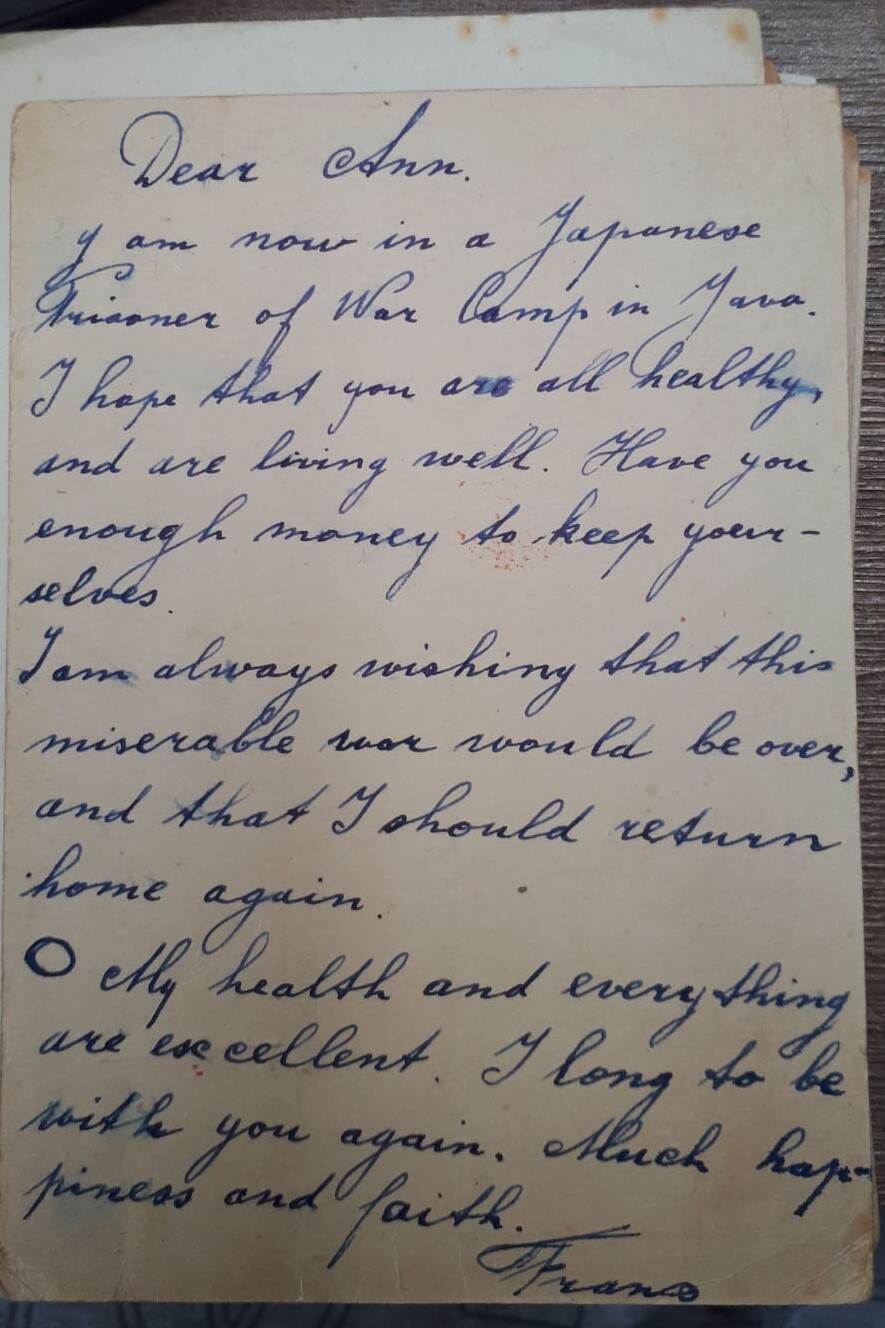 Dear Ann.
I am now in a Japanese
Prisoner of War Camp in Java.
I hope that you are all healthy,
and are living well. Have you
enough money to keep your-
selves.
I am always wishing that this
miserable war would be over,
and that I should return
home again.
O My health and everything
are excellent. I long to be
with you again. Much hap-
piness and faith.
Frans